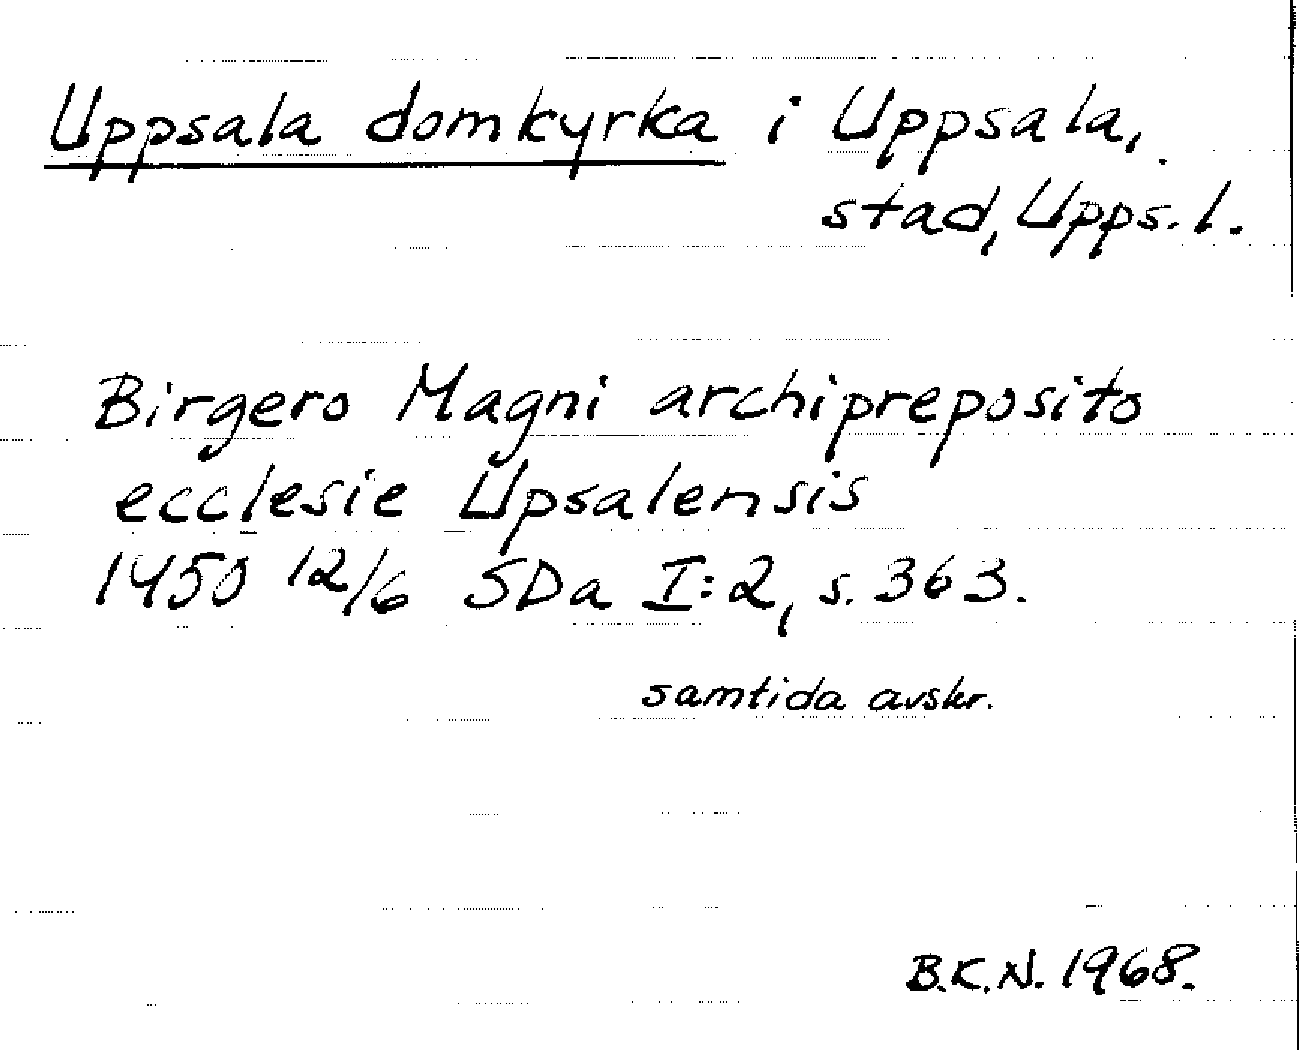 Uppsala domkyrka i Uppsala,
stad, Upps. l.
Birgero Magni archipreposito
ecclesie Upsalensis
1450 12/6 SDa I:2, s. 363.
samtida avskr.
B.K.N. 1968.